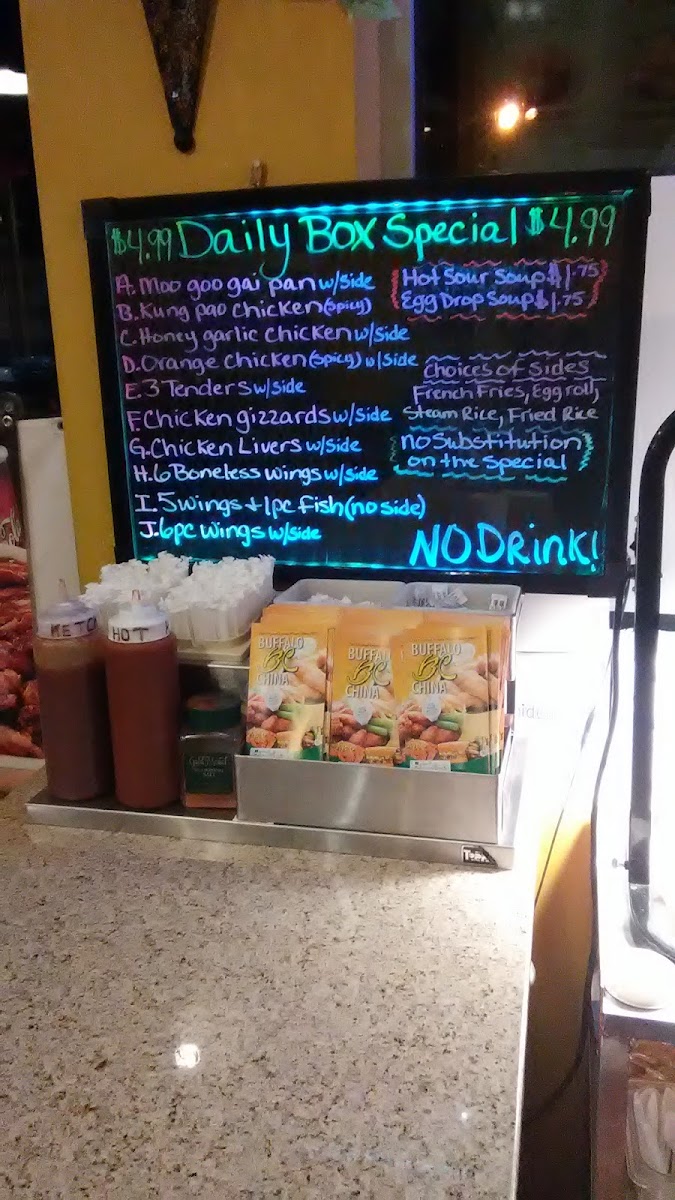 $4.99 Daily Box Special $4.99
A. Moo goo gai pan w/side
B. Kung pao chicken (spicy)
C. Honey garlic chicken w/side
D. Orange chicken (spicy) w/side
E. 3 Tenders w/side
F. Chicken gizzards w/side
G. Chicken Livers w/side
H. 6 Boneless wings w/side
I. 5 wings + 1pc fish (no side)
J. 6pc wings w/side
Hot Sour Soup $1.75
Egg Drop Soup $1.75
Choices of Sides
French Fries, Egg roll,
Steam Rice, Fried Rice
no Substitution
on the Special
NO Drink!
HOT
BUFFALO
BC
CHINA
BUFFALO
BC
CHINA
BUFFALO
BC
CHINA